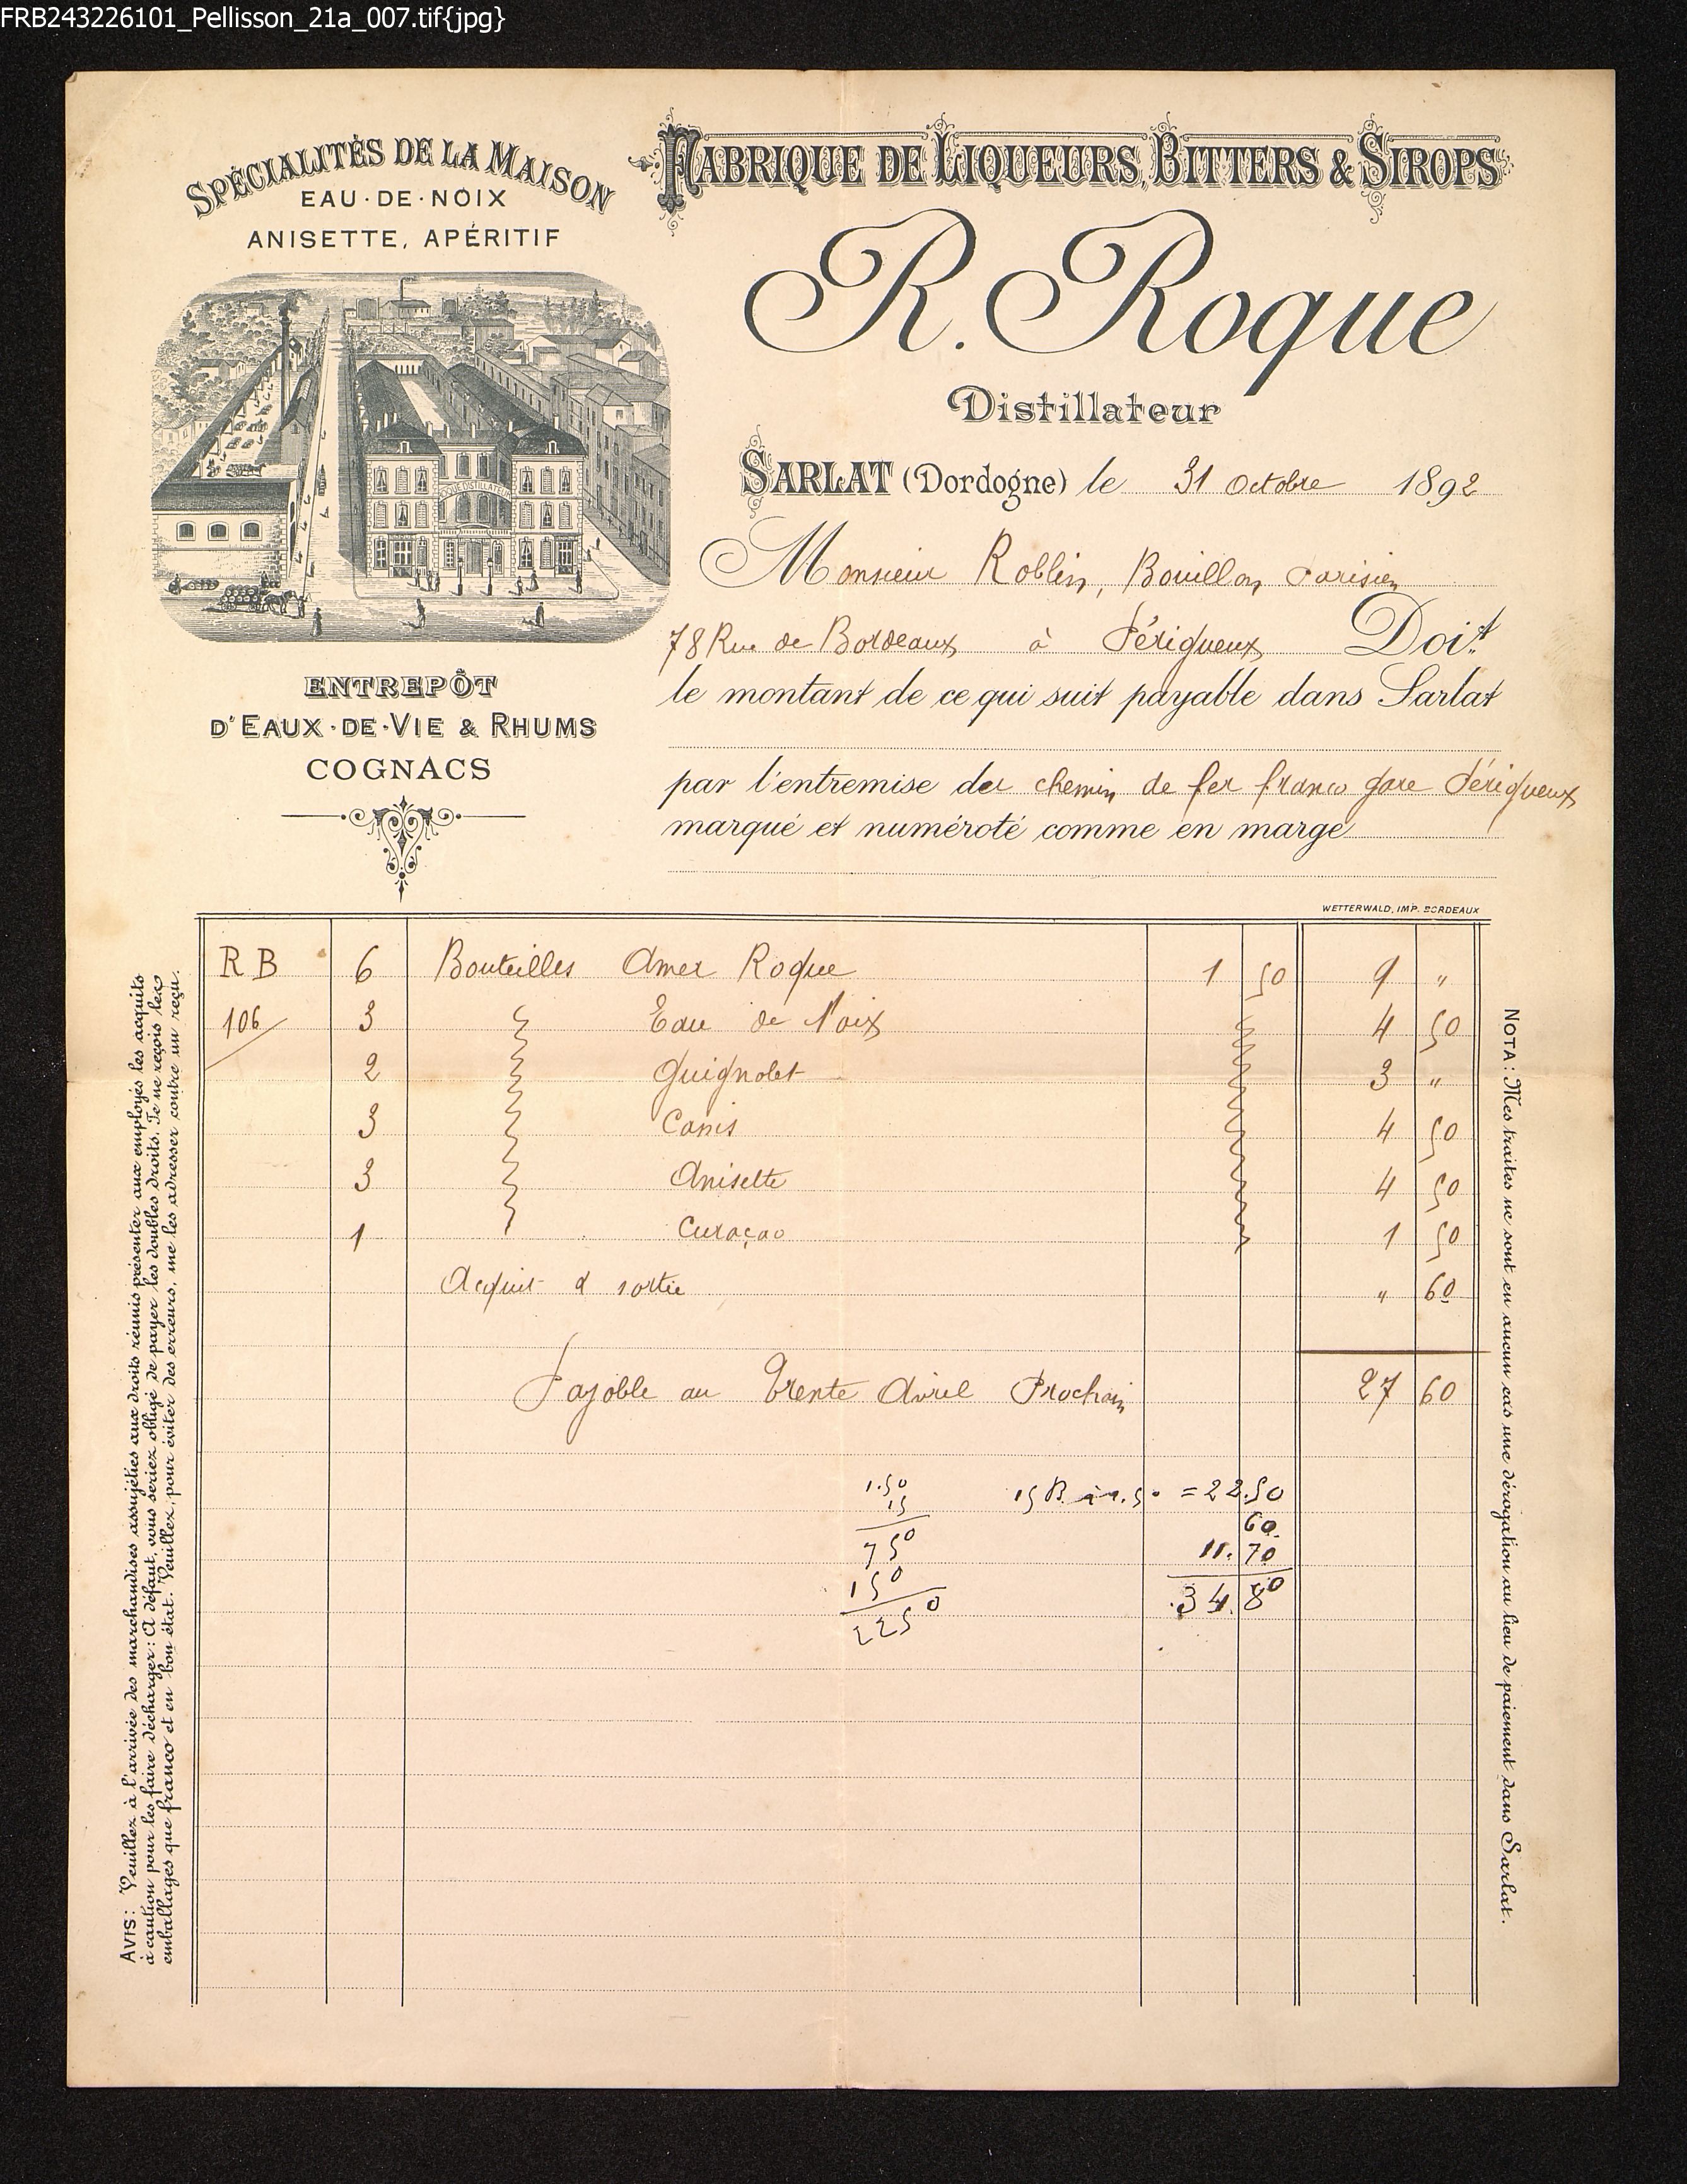 FRB243226101_Pellisson_21a_007.tif{jpg}
SPÉCIALITÉS DE LA MAISON
EAU-DE-NOIX
ANISETTE, APÉRITIF
FABRIQUE DE LIQUEURS, BITTERS & SIROPS
R. Roque
Distillateur
SARLAT (Dordogne) le 31 Octobre 1892
Monsieur Roblin, Bouillon Parisien
78 Rue de Bordeaux à Périgueux Doit
le montant de ce qui suit payable dans Sarlat
par l'entremise du chemin de fer franco gare Périgueux
marqué et numéroté comme en marge
ENTREPÔT
D'EAUX-DE-VIE & RHUMS
COGNACS
WETTERWALD, IMP. BORDEAUX
R B 6 Bouteilles Amer Roque 1 50 9 "
106 3 Eau de Noix 4 50
2 Guignolet 3 "
3 Cassis 4 50
3 Anisette 4 50
1 Curaçao 1 50
Acquit & sortie " 60
Payable au Trente Avril Prochain 27 60
1.50 15 B à 1.50 = 22.50
15 60
750 11.70
150 34.80
2250
AVIS: Veuillez à l'arrivée des marchandises assujéties aux droits réunis présenter aux employés les acquits
à caution pour les faire décharger: A défaut, vous seriez obligé de payer les doubles droits. Je ne reçois les
emballages que franco et en bon état. Veuillez, pour éviter des erreurs, me les adresser contre un reçu.
NOTA: Mes traites ne sont en aucun cas une dérogation au lieu de paiement dans Sarlat.